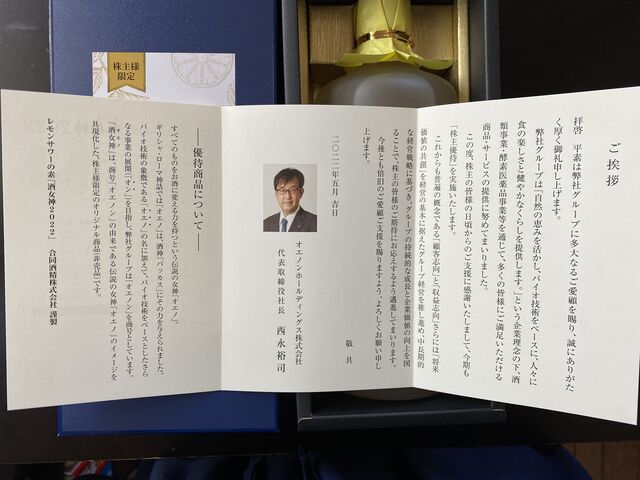 株主様
限定
ご挨拶
拝啓 平素は弊社グループに多大なるご愛顧を賜り、誠にありがた
く厚く御礼申し上げます。
弊社グループは「自然の恵みを活かし、バイオ技術をベースに、人々に
食の楽しさと健やかなくらしを提供します。」という企業理念の下、酒
類事業・酵素医薬品事業等を通じて、多くの皆様にご満足いただける
商品・サービスの提供に努めてまいりました。
この度、株主の皆様の日頃からのご支援に感謝いたしまして、今期も
「株主優待」を実施いたします。
これからも普遍の概念である「顧客志向」と「収益志向」さらには「将来
価値の共創」を経営の基本に据えたグループ経営を推し進め、中長期的
な経営戦略に基づき、グループの持続的な成長と企業価値の向上を図
ることで、株主の皆様のご期待にお応えするよう邁進してまいります。
今後とも倍旧のご愛顧ご支援を賜りますよう、よろしくお願い申し
上げます。
敬具
二〇二二年五月 吉日
オエノンホールディングス株式会社
代表取締役社長 西永裕司
――優待商品について――
すべてのものをお酒に変える力を持つという伝説の女神「オエノ」。
ギリシャ・ローマ神話では「オエノ」は、酒神「バッカス」にその力を与えられました。
バイオ技術の象徴である「オエノ」の名に加えて、バイオ技術をベースとしたさら
なる事業の展開「オン」を目指し、弊社グループは「オエノン」を商号としています。
「酒女神」は、商号「オエノン」の由来である伝説の女神「オエノ」のイメージを
具現化した、株主様限定のオリジナル商品(非売品)です。
レモンサワーの素「酒女神2022」 合同酒精株式会社 謹製